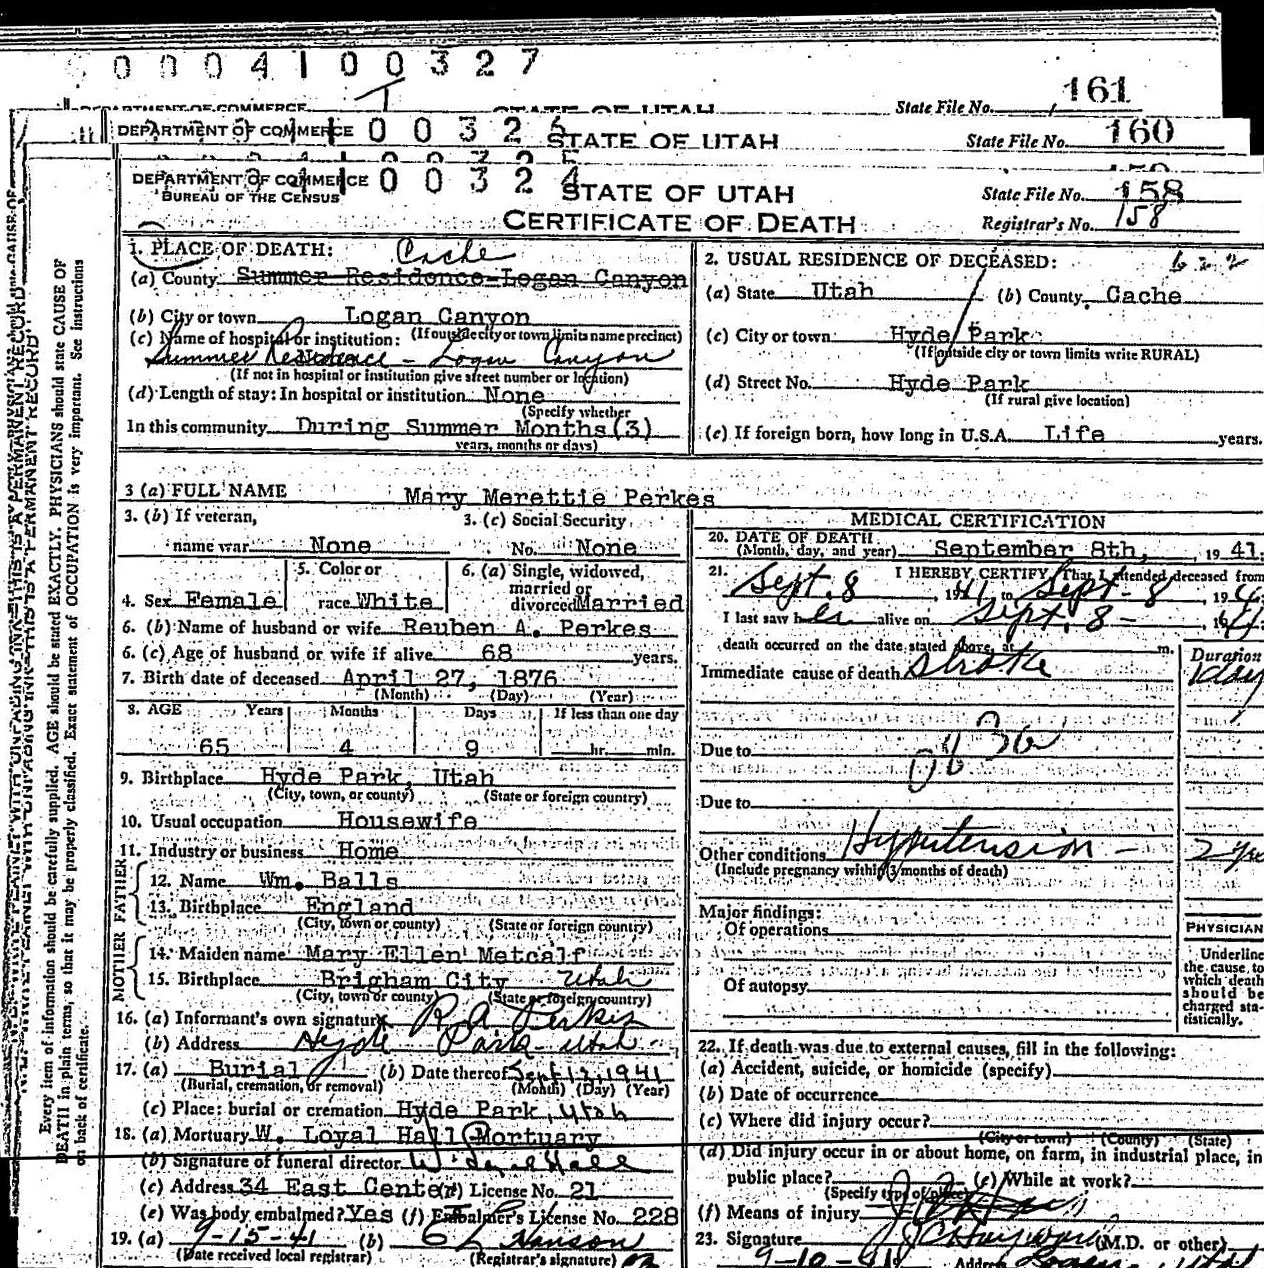 0 0 0 4 1 0 0 3 2 7
STATE OF UTAH State File No. 161
DEPARTMENT OF COMMERCE 0 0 3 2 STATE OF UTAH State File No. 160
DEPARTMENT OF COMMERCE 0 0 3 2 4 STATE OF UTAH State File No. 158
BUREAU OF THE CENSUS CERTIFICATE OF DEATH Registrar's No. 158
1. PLACE OF DEATH: Cache
(a) County Summer Residence-Logan Canyon
(b) City or town Logan Canyon
(If outside city or town limits name precinct)
(c) Name of hospital or institution:
Summer Residence - Logan Canyon
(If not in hospital or institution give street number or location)
(d) Length of stay: In hospital or institution None
(Specify whether
In this community During Summer Months(3)
years, months or days)
2. USUAL RESIDENCE OF DECEASED:
(a) State Utah (b) County Cache
(c) City or town Hyde Park
(If outside city or town limits write RURAL)
(d) Street No. Hyde Park
(If rural give location)
(e) If foreign born, how long in U.S.A. Life years.
3 (a) FULL NAME Mary Merettie Perkes
3. (b) If veteran,
name war None
3. (c) Social Security
No. None
4. Sex Female
5. Color or
race White
6. (a) Single, widowed,
married or
divorced Married
6. (b) Name of husband or wife Reuben A. Perkes
6. (c) Age of husband or wife if alive 68 years.
7. Birth date of deceased April 27, 1876
(Month) (Day) (Year)
8. AGE Years Months Days If less than one day
65 4 9 hr. min.
9. Birthplace Hyde Park, Utah
(City, town, or county) (State or foreign country)
10. Usual occupation Housewife
11. Industry or business Home
FATHER
12. Name Wm. Balls
13. Birthplace England
(City, town or county) (State or foreign country)
MOTHER
14. Maiden name Mary Ellen Metcalf
15. Birthplace Brigham City Utah
(City, town or county) (State or foreign country)
16. (a) Informant's own signature R. A. Perkes
(b) Address Hyde Park - Utah
17. (a) Burial (b) Date thereof Sept 12, 1941
(Burial, cremation, or removal) (Month) (Day) (Year)
(c) Place: burial or cremation Hyde Park, Utah
18. (a) Mortuary W. Loyal Hall Mortuary
(b) Signature of funeral director W. Loyal Hall
(c) Address 34 East Center License No. 21
(e) Was body embalmed? Yes (f) Embalmer's License No. 228
19. (a) 9-15-41 (b) Hanson
(Date received local registrar) (Registrar's signature)
MEDICAL CERTIFICATION
20. DATE OF DEATH
(Month, day, and year) September 8th, 1941.
21. I HEREBY CERTIFY, That I attended deceased from
Sept. 8, 1941 to Sept - 8, 19
I last saw her alive on Sept. 8 - , 1941
death occurred on the date stated above, at m.
Duration
Immediate cause of death Stroke 1 day
Due to
Due to
Other conditions Hypertension - 2 yrs
(Include pregnancy within 3 months of death)
Major findings:
Of operations
Of autopsy
PHYSICIAN
Underline
the cause to
which death
should be
charged sta-
tistically.
22. If death was due to external causes, fill in the following:
(a) Accident, suicide, or homicide (specify)
(b) Date of occurrence
(c) Where did injury occur?
(City or town) (County) (State)
(d) Did injury occur in or about home, on farm, in industrial place, in
public place? (e) While at work?
(Specify type of place)
(f) Means of injury
23. Signature (M.D. or other)
Address Logan Utah
Every item of information should be carefully supplied. AGE should be stated EXACTLY. PHYSICIANS should state CAUSE OF
DEATH in plain terms, so that it may be properly classified. Exact statement of OCCUPATION is very important. See instructions
on back of certificate.